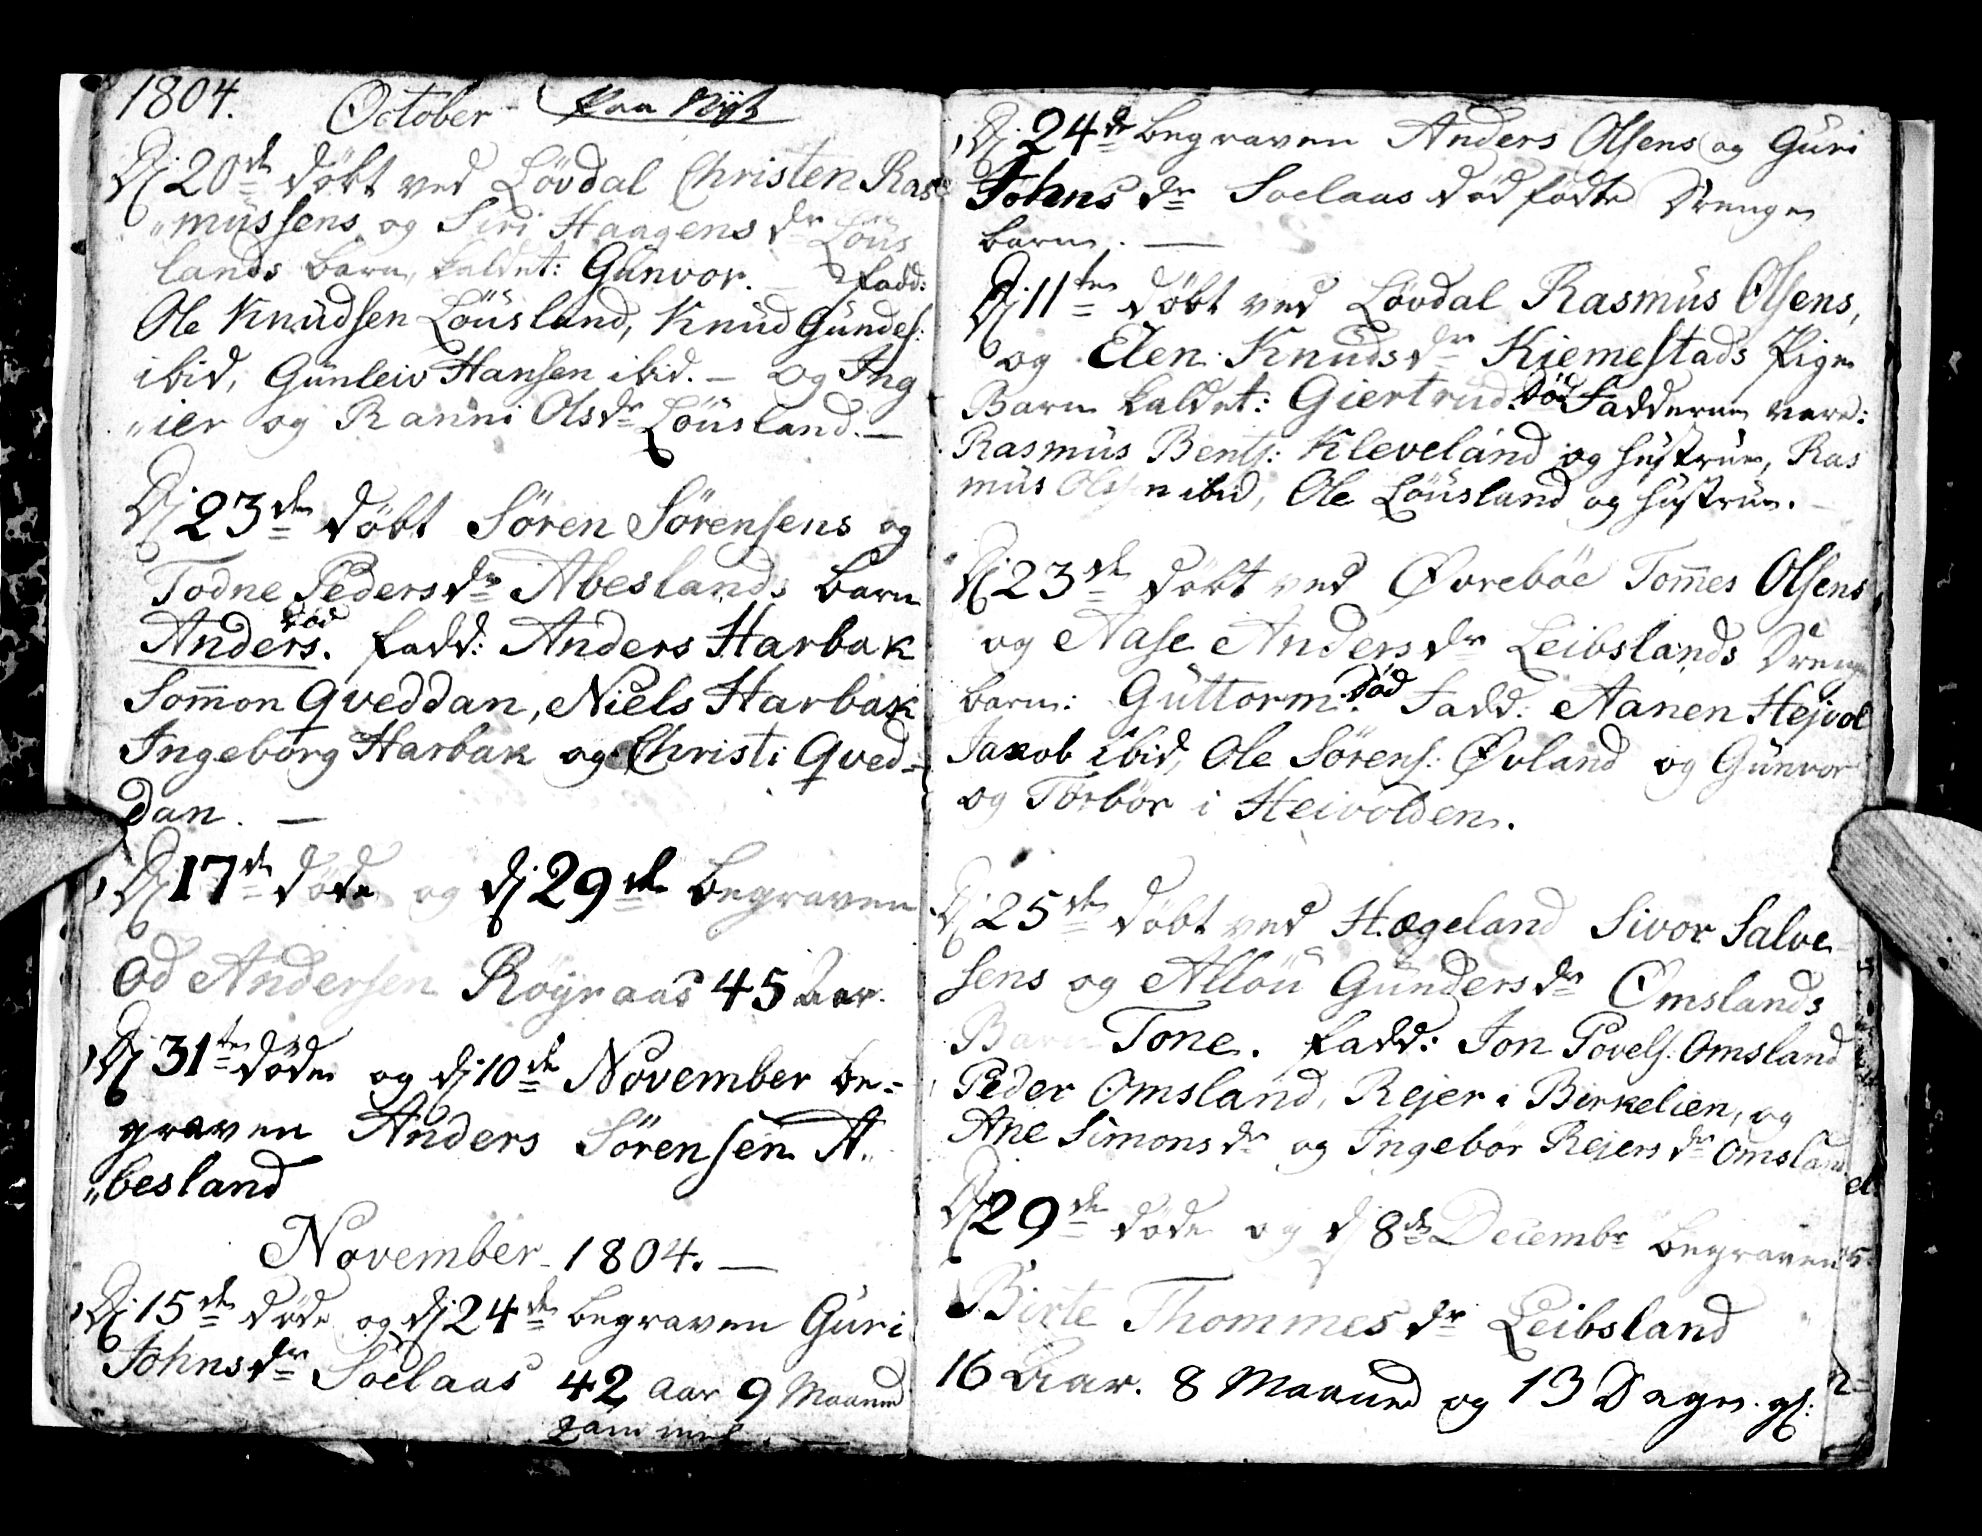 1804. October paa Nyt
Dj 20de døbt ved Løvdal Christen Ras-
„mussens og Siri Haagens dr Løus
lands barn, kaldet: Gunvor. – Fadd:
Ole Knudsen Løusland, Knud Gundes:
ibid, Gunleiv Hansen ibid. – og Ing
„ier og Ranni Olsdr Løusland. –
Dj 23de døbt Søren Sørensens og
Todne Pedersdr Abeslands barn
død
Anders. Fadd: Anders Harbak
Som̄on Qveddan, Niels Harbak
Ingeborg Harbak og Christi Qved=
dan. –
Dj 17de døde og dj 29de begraven
Od Andersen Röyraas 45 Aar.
Dj 31te døde og dj 10de November be=
graven Anders Sørensen A„
„besland
November 1804. –
Dj 15de døde og dj 24de begraven Guri
Johnsdr Soelaas 42 aar 9 Maaned
gammel.
Dj 24de begraven Anders Olsens og Guri
Johns dr Soelaas død fødte Drenge
barn. –
Dj 11te døbt ved Løvdal Rasmus Olsens,
og Elen Knudsdr Kiemestads Pige
Barn kaldet: Giertrud. død Fadderne vare:
Rasmus Bents: Kleveland og hustrue, Ras
mus Olsen ibid, Ole Löusland og hustrue. –
Dj 23de døbt ved Øvrebøe Tom̄es Olsens
og Aase Andersdr Leibslands Drenge
barn: Guttorm. død Fadd: Aanen Hejvol
Jakob ibid, Ole Sørens: Øvland og Gunvor
og Torbör i Heivolden.
Dj 25de døbt ved Hægeland Sivor Salve
sens og Alloü Gundersdr Omslands
Barn Tone. Fadd: Jon Povels: Omsland
Peder Omsland, Rejer i Birkelien, og
Ane Simonsdr og Ingebor Rejersdr Omsland
Dj 29de døde og dj 8de Decembr begraven
Birte Thommesdr Leibsland
16 Aar. 8 Maaned og 13 Dage. gl: